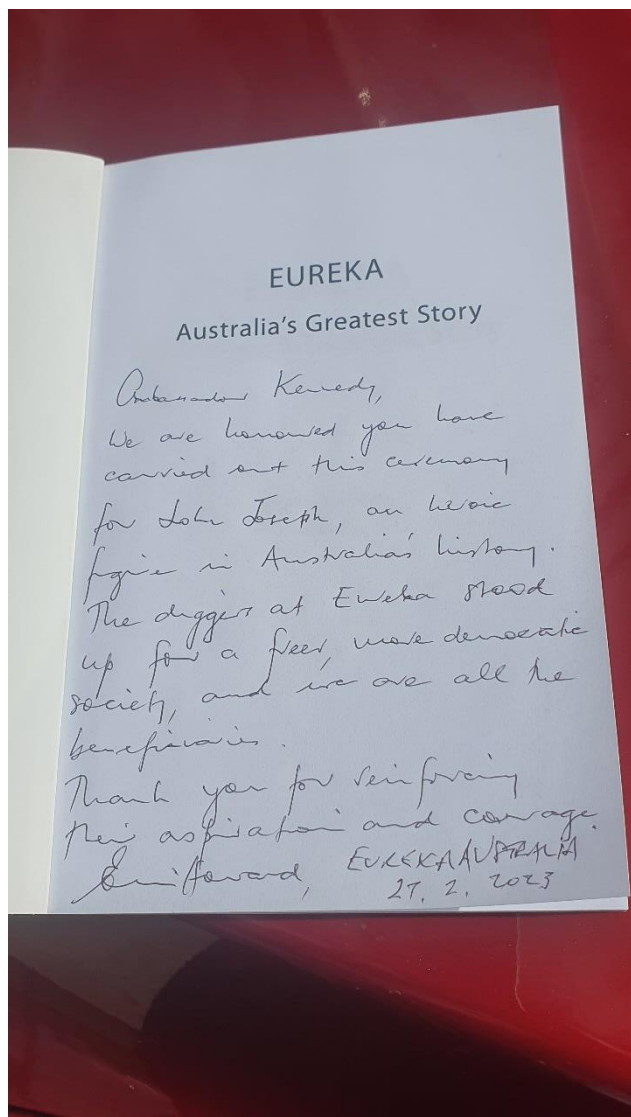 EUREKA
Australia's Greatest Story
Ambassador Kennedy,
We are honoured you have
carried out this ceremony
for John Joseph, an heroic
figure in Australia's history.
The diggers at Eureka stood
up for a freer, more democratic
society, and we are all the
beneficiaries.
Thank you for reinforcing
their aspiration and courage.
Howard, EUREKA AUSTRALIA
27. 2. 2023